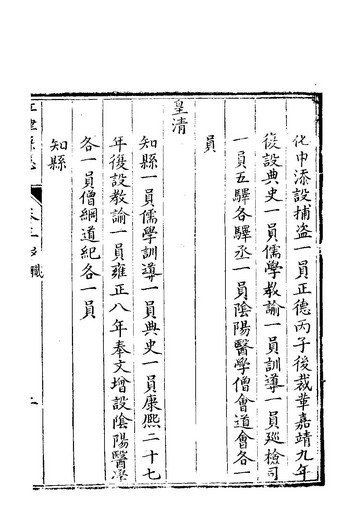 化中添設捕盜一員正德丙子後裁革嘉靖九年
復設典史一員儒學教諭一員訓導一員廵檢司
一員五驛各驛丞一員陰陽醫學僧會道會各一
員
皇清
知縣一員儒學訓導一員典史一員康熙二十七
年復設教諭一員雍正八年奉文增設陰陽醫學
各一員僧綱道紀各一員
知縣
江津縣志
卷之
職